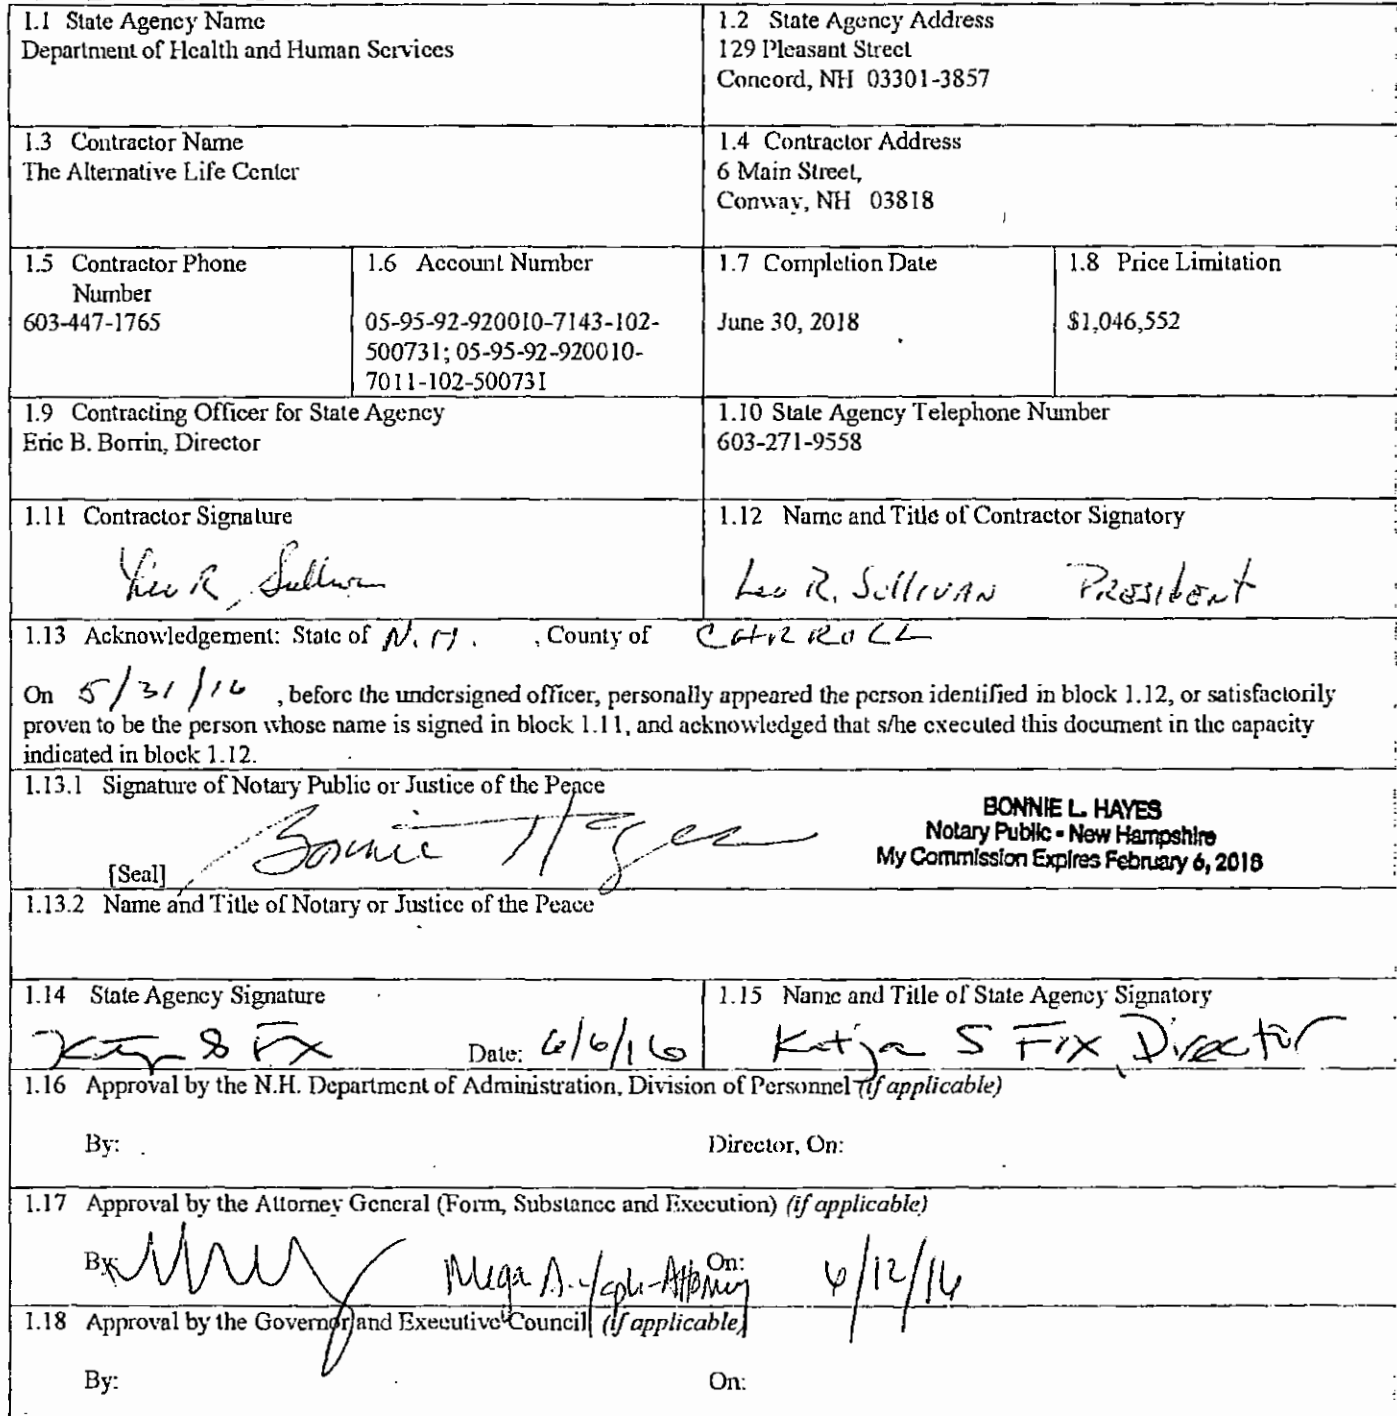 1.1 State Agency Name
Department of Health and Human Services
1.2 State Agency Address
129 Pleasant Street
Concord, NH 03301-3857
1.3 Contractor Name
The Alternative Life Center
1.4 Contractor Address
6 Main Street,
Conway, NH 03818
1.5 Contractor Phone
Number
603-447-1765
1.6 Account Number
05-95-92-920010-7143-102-
500731; 05-95-92-920010-
7011-102-500731
1.7 Completion Date
June 30, 2018
1.8 Price Limitation
$1,046,552
1.9 Contracting Officer for State Agency
Eric B. Borrin, Director
1.10 State Agency Telephone Number
603-271-9558
1.11 Contractor Signature
Leo R. Sullivan
1.12 Name and Title of Contractor Signatory
Leo R. Sullivan President
1.13 Acknowledgement: State of N.H. , County of CARROLL
On 5/31/16 , before the undersigned officer, personally appeared the person identified in block 1.12, or satisfactorily
proven to be the person whose name is signed in block 1.11, and acknowledged that s/he executed this document in the capacity
indicated in block 1.12.
1.13.1 Signature of Notary Public or Justice of the Peace
Bonnie Hayes
[Seal]
BONNIE L. HAYES
Notary Public - New Hampshire
My Commission Expires February 6, 2018
1.13.2 Name and Title of Notary or Justice of the Peace
1.14 State Agency Signature
Date: 6/6/16
1.15 Name and Title of State Agency Signatory
Katja S Fox, Director
1.16 Approval by the N.H. Department of Administration, Division of Personnel (if applicable)
By: Director, On:
1.17 Approval by the Attorney General (Form, Substance and Execution) (if applicable)
By: Megan A. - Attorney On: 6/12/16
1.18 Approval by the Governor and Executive Council (if applicable)
By: On: